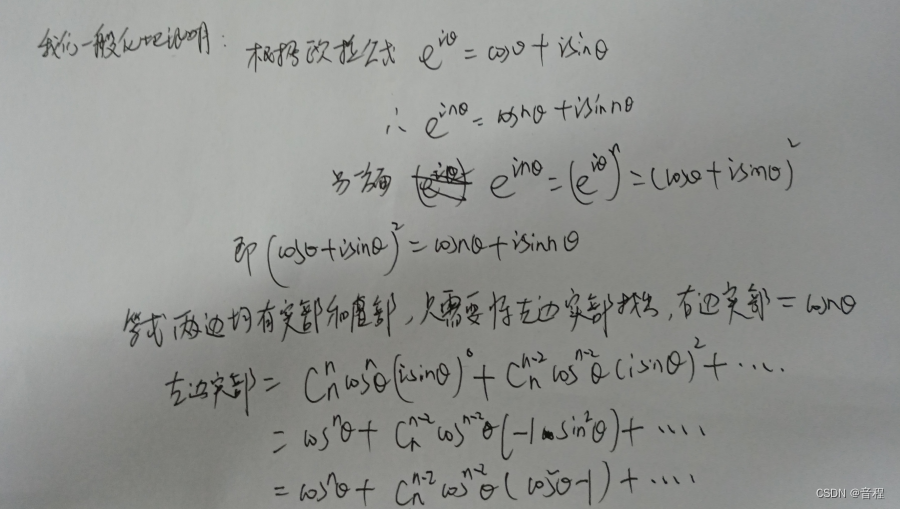 我们一般化地说明: 根据欧拉公式 e^{iθ} = cosθ + isinθ
∴ e^{inθ} = cosnθ + isinnθ
另一方面 e^{inθ} = (e^{iθ})^n = (cosθ + isinθ)^2
即 (cosθ + isinθ)^2 = cosnθ + isinnθ
等式两边均有实部和虚部, 只需要将左边实部找出, 右边实部 = cosnθ
左边实部 = C_n^n cos^nθ (isinθ)^0 + C_n^{n-2} cos^{n-2}θ (isinθ)^2 + ....
= cos^nθ + C_n^{n-2} cos^{n-2}θ (-1·sin^2θ) + ....
= cos^nθ + C_n^{n-2} cos^{n-2}θ (cos^2θ - 1) + ....
CSDN @音程